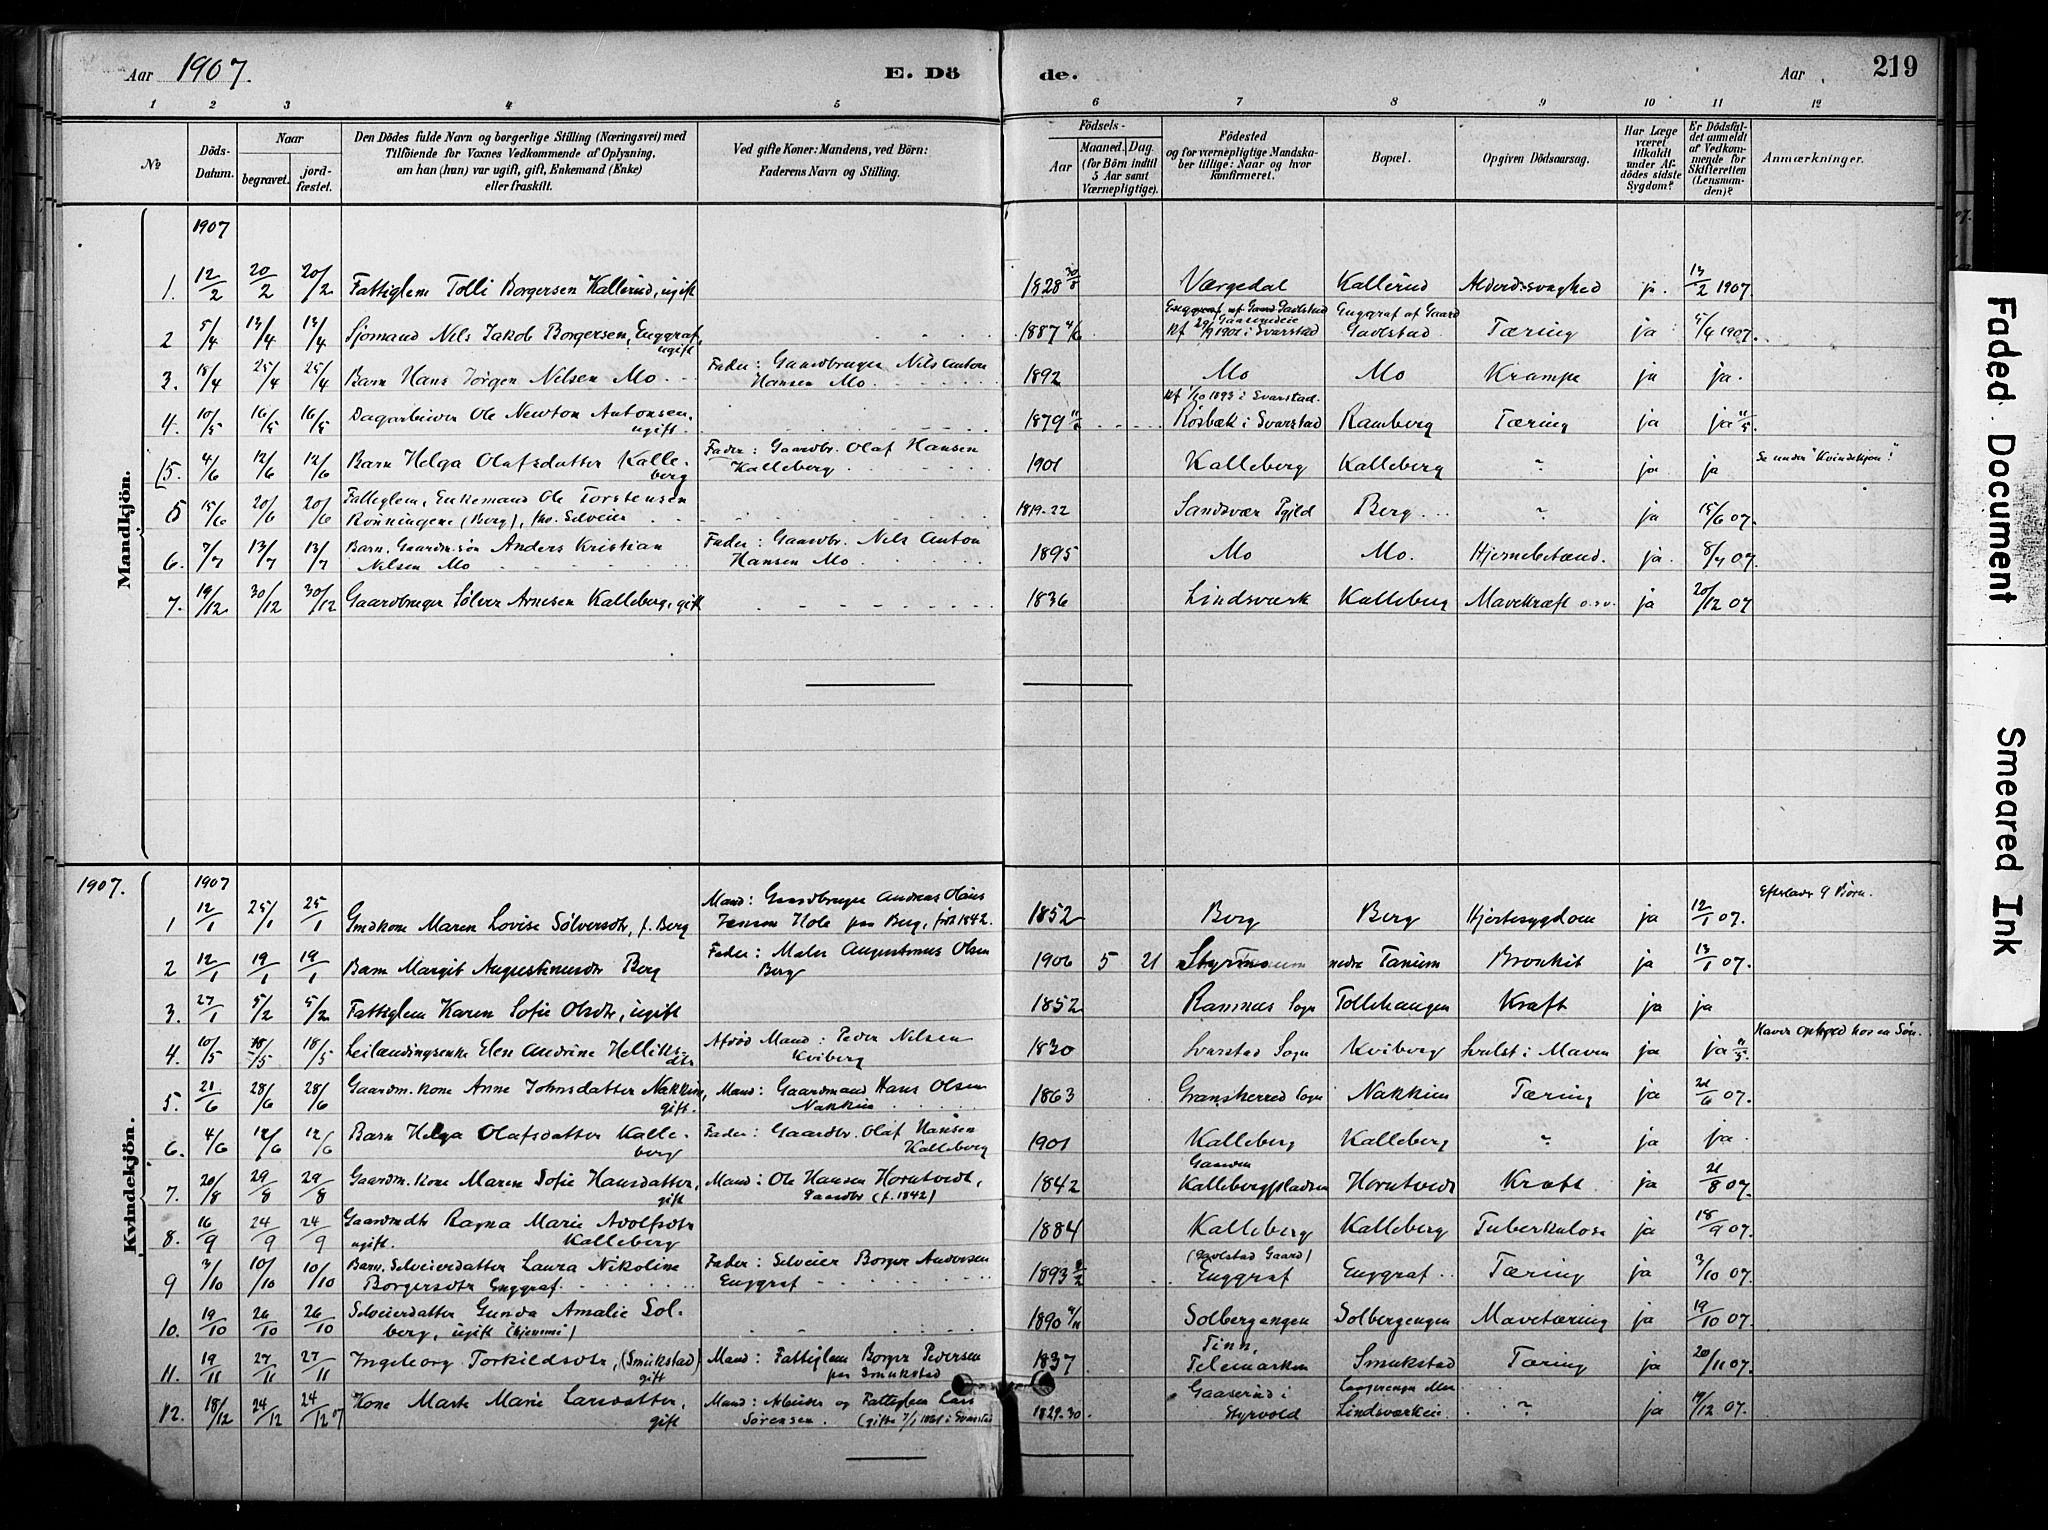 Aar 1907. E. Dö
de. Aar 219
1 2 3 4 5 6 7 8 9 10 11 12
No
Döds-Datum.
Naar
begravet.
jordfæstet.
Den Dödes fulde Navn og borgerlige Stilling (Næringsvei) med
Tilföiende for Voxnes Vedkommende af Oplysning,
om han (hun) var ugift, gift, Enkemand (Enke)
eller fraskilt.
Ved gifte Koner: Mandens, ved Börn:
Faderens Navn og Stilling.
Födsels-
Aar
Maaned. Dag.
(for Börn indtil
5 Aar samt
Værnepligtige).
Födested
og for værnepligtige Mandskaber tillige: Naar og hvor
konfirmeret.
Bopæl.
Opgiven Dödsaarsag.
Har Læge
været
tilkaldt
under Afdödes sidste
Sygdom?
Er Dödsfaldet anmeldt
af Vedkommende for
Skifteretten
(Lensmanden)?
Anmærkninger.
Mandkjön.
1907
1. 12/2 20/2 20/2 Fattiglem Tolli Borgersen Kallerud, ugift 1828 30/8 Værgedal Kallerud Alderdsvaghed ja 13/2 1907.
2 5/4 13/4 13/4 Sjømand Nils Jakob Borgersen, Enggraf, ugift 1887 4/6 Kf 29/9 1901 i Svarstad Enggraf af Gaard Gavlstad Tæring ja 5/4 1907.
3. 18/4 25/4 25/4 Barn Hans Jørgen Nilsen Mo Fader: Gaardbruger Nils Anton Hansen Mo 1892 Mo Mo Krampe ja ja.
4. 10/5 16/5 16/5 Dagarbeider Ole Newton Antonsen, ugift. 1879 11/2 Kf 1/10 1893 i Svarstad. Røsbæk i Svarstad Ramberg Tæring ja ja 11/5
[5. 4/6 12/6 12/6 Barn Helga Olafsdatter Kalleberg Fader: Gaardbr. Olaf Hansen Kalleberg 1901 Kalleberg Kalleberg ? ja ja Se under "Kvindekjøn"!
5 15/6 20/6 20/6 Fattiglem, Enkemand Ole Torstensen Rønningene (Berg), fho. Selveier 1819-22 Sandsvær Pgjld Berg ? ja 15/6 07.
6. 7/7 13/7 13/7 Barn, Gaardm.søn Anders Kristian Nilsen Mo Fader: Gaardbr. Nils Anton Hansen Mo 1895 Mo Mo. Hjernebetænd. ja. 8/7 07.
7. 19/12 30/12 30/12 Gaardbruger Sølver Arnesen Kalleberg, gift 1836 Lindsværk Kalleberg Mavekræft o.s.v. ja 20/12 07.
Kvindekjön.
1907. 1907
1 12/1 25/1 25/1 Gmdkone Maren Lovise Sølversdtr, f. Berg Mand: Gaardbruger Andreas Olaus Jensen Hole paa Berg, født 1842. 1852 Berg Berg Hjertesygdom ja 12/1 07. Efterlader 9 Børn.
2 12/1 19/1 19/1 Barn Margit Augustinusdtr Berg Fader: Maler Augustinus Olsen Berg 1906 5 21 nedre Tanum Bronkit ja 13/1 07.
3. 27/1 5/2 5/2 Fattiglem Karen Sofie Olsdtr, ugift 1852 Ramnæs Sogn Tollehaugen Kræft ja ja
4. 10/5 18/5 18/5 Leilændingsenke Elen Andrine Helliksdtr Afdød Mand: Peder Nilsen Kviberg 1830 Svarstad Sogn Kviberg Svulst i Maven ja ja 11/5. Haver ophold hos en Søn.
5. 21/6 28/6 28/6 Gaardm. kone Anne Johnsdatter Nakkim, gift. Mand: Gaardmand Hans Olsen Nakkim 1863 Gransherred Sogn Nakkim Tæring ja 21/6 07.
6. 4/6 12/6 12/6 Barn Helga Olafsdatter Kalleberg Fader: Gaardbr. Olaf Hansen Kalleberg 1901 Kalleberg Kalleberg ? ja ja.
7. 20/8 29/8 29/8 Gaardm. kone Maren Sofie Hansdatter, gift Mand: Ole Hansen Horntvedt, Gaardbr (f. 1842) 1842 Kallebergpladsen Horntvedt Kræft. ja 21/8 07.
8. 16/9 24/9 24/9 Gaardmdtr Ragna Marie Adolfsdtr ugift. Kalleberg 1884 Kalleberg Kalleberg Tuberkulose ja 18/9 07.
9 3/10 10/10 10/10 Barn, Selveierdatter Laura Nikoline Borgersdtr Enggraf. Fader: Selveier Borger Andersen Enggraf 1893 8/2 (Gavlstad Gaard) Enggraf Enggraf Tæring ja 3/10 07.
10. 19/10 26/10 26/10 Selveierdatter Gunda Amalie Solberg, ugift (hjemme) 1890 4/11 Solbergengen Solbergengen Mavetæring ja 19/10 07.
11. 19/11 27/11 27/11 Ingeborg Torkildsdtr, (Smukstad) gift Mand: Fattiglem Borger Pedersen paa Smukstad 1837 Tinn, Telemarken Smukstad Tæring ja 20/11 07.
12. 18/12 24/12 24/12 07 Kone Marte Marie Larsdatter, gift Mand: Arbeider og Fattiglem Lars Sørensen. 1829-30 Gaaserud i Styrvold Lindsværkeie ? ja 19/12 07.
Faded Document
Smeared Ink